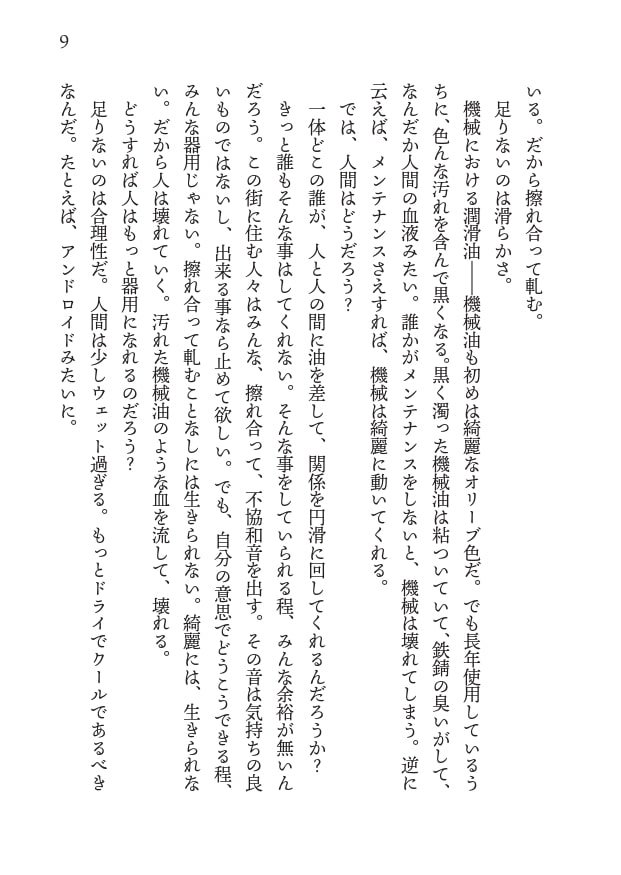 9
いる。だから擦れ合って軋む。
足りないのは滑らかさ。
機械における潤滑油――機械油も初めは綺麗なオリーブ色だ。でも長年使用しているう
ちに、色んな汚れを含んで黒くなる。黒く濁った機械油は粘ついていて、鉄錆の臭いがして、
なんだか人間の血液みたい。誰かがメンテナンスをしないと、機械は壊れてしまう。逆に
云えば、メンテナンスさえすれば、機械は綺麗に動いてくれる。
では、人間はどうだろう？
一体どこの誰が、人と人の間に油を差して、関係を円滑に回してくれるんだろうか？
きっと誰もそんな事はしてくれない。そんな事をしていられる程、みんな余裕が無いん
だろう。この街に住む人々はみんな、擦れ合って、不協和音を出す。その音は気持ちの良
いものではないし、出来る事なら止めて欲しい。でも、自分の意思でどうこうできる程、
みんな器用じゃない。擦れ合って軋むことなしには生きられない。綺麗には、生きられな
い。だから人は壊れていく。汚れた機械油のような血を流して、壊れる。
どうすれば人はもっと器用になれるのだろう？
足りないのは合理性だ。人間は少しウェット過ぎる。もっとドライでクールであるべき
なんだ。たとえば、アンドロイドみたいに。